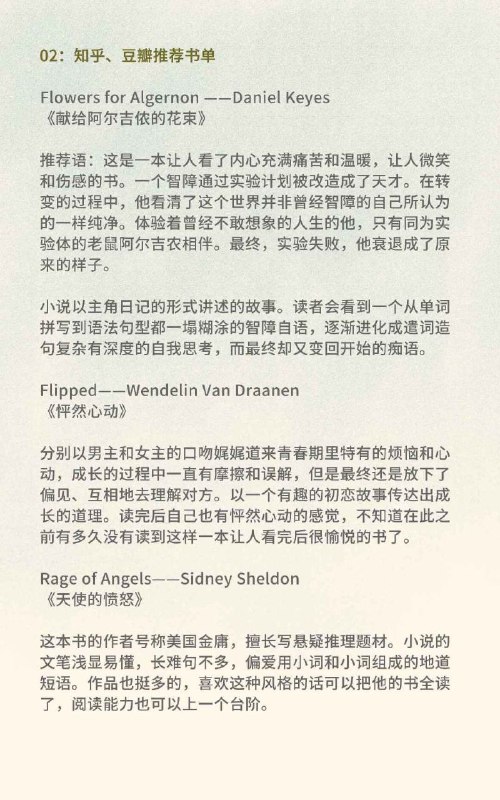 02：知乎、豆瓣推荐书单
Flowers for Algernon ——Daniel Keyes
《献给阿尔吉侬的花束》
推荐语：这是一本让人看了内心充满痛苦和温暖，让人微笑
和伤感的书。一个智障通过实验计划被改造成了天才。在转
变的过程中，他看清了这个世界并非曾经智障的自己所认为
的一样纯净。体验着曾经不敢想象的人生的他，只有同为实
验体的老鼠阿尔吉农相伴。最终，实验失败，他衰退成了原
来的样子。
小说以主角日记的形式讲述的故事。读者会看到一个从单词
拼写到语法句型都一塌糊涂的智障自语，逐渐进化成遣词造
句复杂有深度的自我思考，而最终却又变回开始的痴语。
Flipped——Wendelin Van Draanen
《怦然心动》
分别以男主和女主的口吻娓娓道来青春期里特有的烦恼和心
动，成长的过程中一直有摩擦和误解，但是最终还是放下了
偏见、互相地去理解对方。以一个有趣的初恋故事传达出成
长的道理。读完后自己也有怦然心动的感觉，不知道在此之
前有多久没有读到这样一本让人看完后很愉悦的书了。
Rage of Angels——Sidney Sheldon
《天使的愤怒》
这本书的作者号称美国金庸，擅长写悬疑推理题材。小说的
文笔浅显易懂，长难句不多，偏爱用小词和小词组成的地道
短语。作品也挺多的，喜欢这种风格的话可以把他的书全读
了，阅读能力也可以上一个台阶。